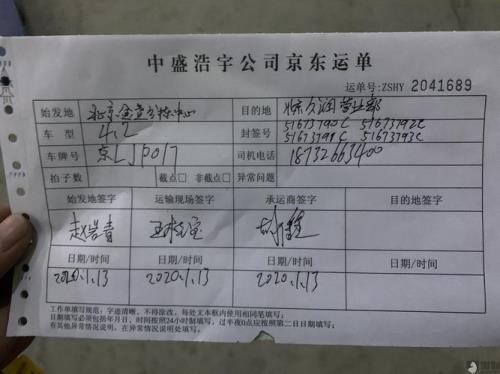 中盛浩宇公司京东运单
运单号:ZSHY 2041689
始发地 北京金盏分拣中心 目的地 营业部
车型 4.2 封签号 51673790C 51673792C
51673798C 51673793C
车牌号 京LJP017 司机电话 18732663400
拍子数 截点□ 非截点□ 异常问题
始发地签字 运输现场签字 承运商签字 目的地签字
日期/时间 日期/时间 日期/时间 日期/时间
2020.1.13 2020.1.13 2020.1.13
工作单填写规范:字迹清晰,不得涂改,每处文本框内使用相同笔填写;
日期填写必须包括年月日,时间按照24小时制填写,过半夜0点应按照第二日日期填写;
有其他异常情况说明,在异常情况说明处填写。